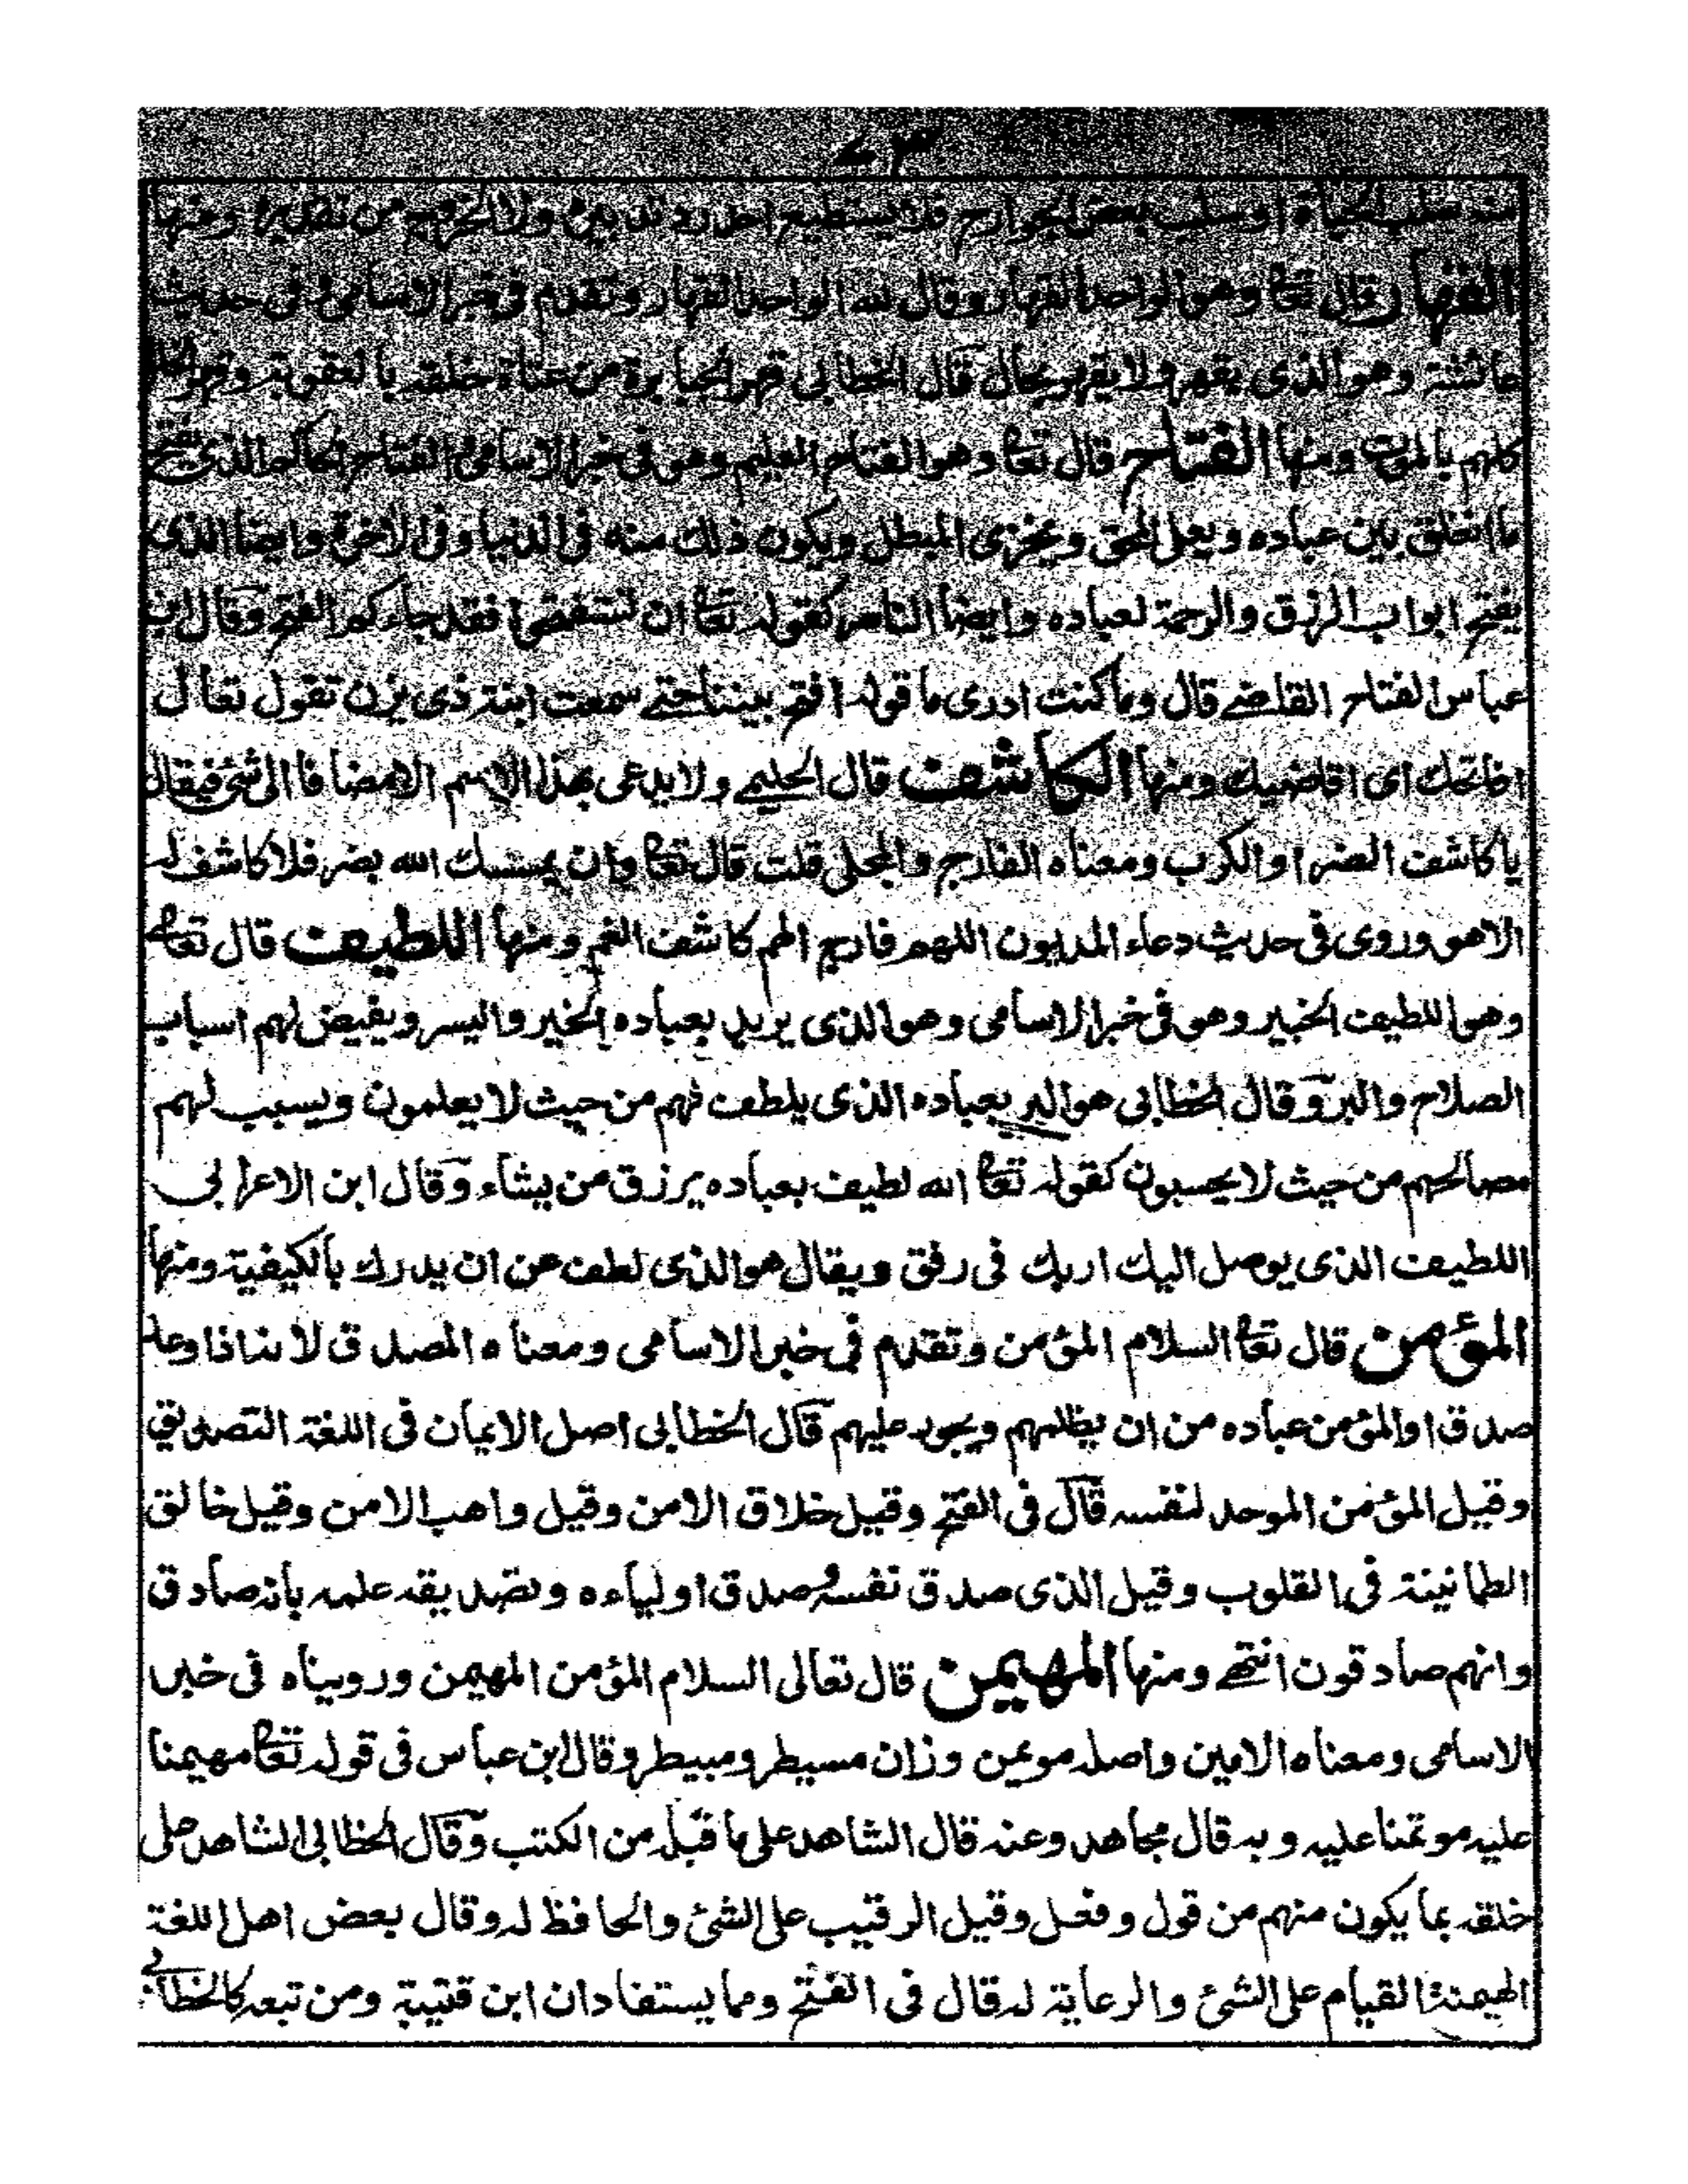 منه سلب الحياة او سلب بعض الجوارح فلا يستطيع احد رد تدبيره ولا الخروج من تقديره ومنها
القهار قال تعا وهو الواحد القهار وقال لله الواحد القهار وتقدم في خبر الاسامى وفى حديث
عائشة وهو الذى يقهر ولا يقهر بحال قال الخطابى قهر الجبابرة من عتاة خلقه بالعقوبة وقهر الخلق
كلهم بالموت ومنها الفتاح قال تعا وهو الفتاح العليم وهو فى خبر الاسامى الفتاح الحاكم الذى يفتح
ما انغلق بين عباده ويعلى المحق ويخزى المبطل ويكون ذلك منه فى الدنيا وفى الاخرة وايضا الذى
يفتح ابواب الرزق والرحمة لعباده وايضا الناصر كقوله تعا ان تستفتحوا فقد جاءكم الفتح وقال ابن
عباس الفتاح القاضى قال وما كنت ادرى ما قوله افتح بيننا حتى سمعت ابنة ذى يزن تقول تعال
افاتحك اى اقاضيك ومنها الكاشف قال الحليمى ولا يدعى بهذا الاسم الا مضافا الى شئ فيقال
يا كاشف الضر او الكرب ومعناه الفارج والمجلى قلت قال تعا وان يمسسك الله بضر فلا كاشف له
الا هو وروى فى حديث دعاء المديون اللهم فارج الهم كاشف الغم ومنها اللطيف قال تعا
وهو اللطيف الخبير وهو فى خبر الاسامى وهو الذى يريد بعباده الخير واليسر ويقيض لهم اسباب
الصلاح والبر وقال الخطابى هو البر بعباده الذى يلطف بهم من حيث لا يعلمون ويسبب لهم
مصالحهم من حيث لا يحسبون كقوله تعا الله لطيف بعباده يرزق من يشاء وقال ابن الاعرابى
اللطيف الذى يوصل اليك اربك فى رفق ويقال هو الذى لطف عن ان يدرك بالكيفية ومنها
المؤمن قال تعا السلام المؤمن وتقدم فى خبر الاسامى ومعناه المصدق لانه اذا وعد
صدق او المؤمن عباده من ان يظلمهم ويجور عليهم قال الخطابى اصل الايمان فى اللغة التصديق
وقيل المؤمن الموحد لنفسه قال فى الفتح وقيل خلاق الامن وقيل واهب الامن وقيل خالق
الطمانينة فى القلوب وقيل الذى صدق نفسه وصدق اولياءه وتصديقه علمه بانه صادق
وانهم صادقون انتهى ومنها المهيمن قال تعالى السلام المؤمن المهيمن ورويناه فى خبر
الاسامى ومعناه الامين واصله مويمن وزان مسيطر ومبيطر وقال ابن عباس فى قوله تعا مهيمنا
عليه موتمنا عليه وبه قال مجاهد وعنه قال الشاهد على ما قبله من الكتب وقال الخطابى الشاهد على
خلقه بما يكون منهم من قول وفعل وقيل الرقيب على الشئ والحافظ له وقال بعض اهل اللغة
الهيمنة القيام على الشئ والرعاية له قال فى الفتح ومما يستفاد ان ابن قتيبة ومن تبعه كالخطابى